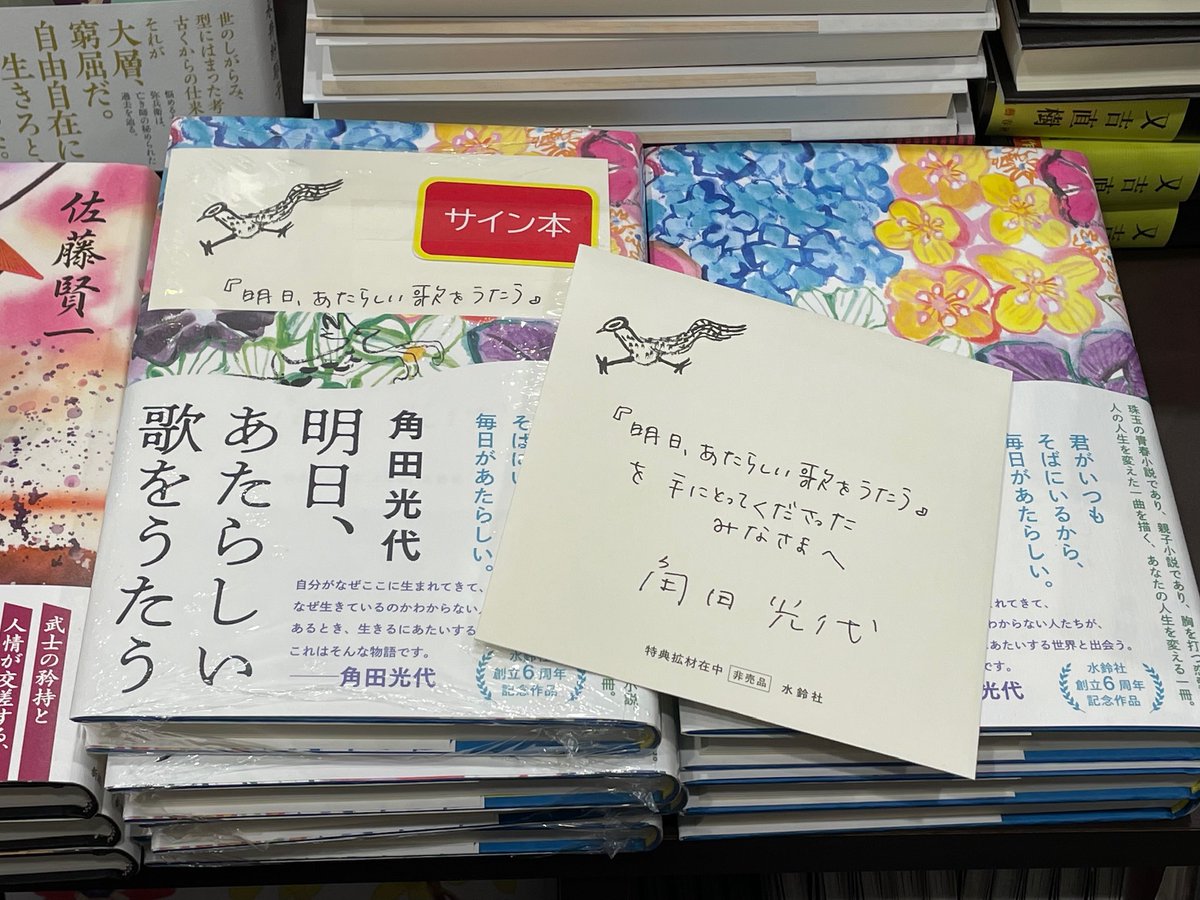 世のしがらみ、
古くからの仕来
型にはまった考
それが
大層、
窮屈だ。
自由自在に
生きろと
悩める
弥兵衛は、
亡き師の秘められた
過去を辿る。
又吉直樹
又吉直
又吉直
佐藤賢一
武士の矜持と
人情が交差する、
サイン本
『明日、あたらしい歌をうたう』
角田光代
明日、
あたらしい
歌をうたう
そばにい
毎日があたらしい。
自分がなぜここに生まれてきて、
なぜ生きているのかわからない
あるとき、生きるにあたいする
これはそんな物語です。
——角田光代
水鈴社
創立6周年
記念作品
小説、
冊。
『明日、あたらしい歌をうたう』
を手にとってくださった
みなさまへ
角田光代
特典拡材在中 非売品 水鈴社
珠玉の青春小説であり、親子小説であり、胸を打つ恋
人の人生を変えた一曲を描く、あなたの人生を変える一冊。
君がいつも
そばにいるから、
毎日があたらしい。
れてきて、
わからない人たちが、
あたいする世界と出会う。
です。
光代
水鈴社
創立6周年
記念作品